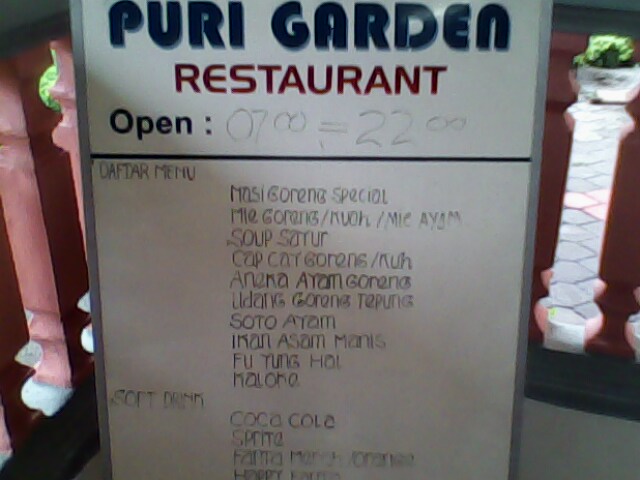 PURI GARDEN
RESTAURANT
Open : 07⁰⁰ = 22⁰⁰
DAFTAR MENU
Nasi Goreng Special
Mie Goreng/Kuah /Mie Ayam
Soup Sayur
Cap Cay Goreng /Kuh
Aneka Ayam Goreng
Udang Goreng Tepung
Soto Ayam
Ikan Asam Manis
Fu Yung Hai
Kaloke
SOFT DRINK
Coca Cola
Sprite
Fanta